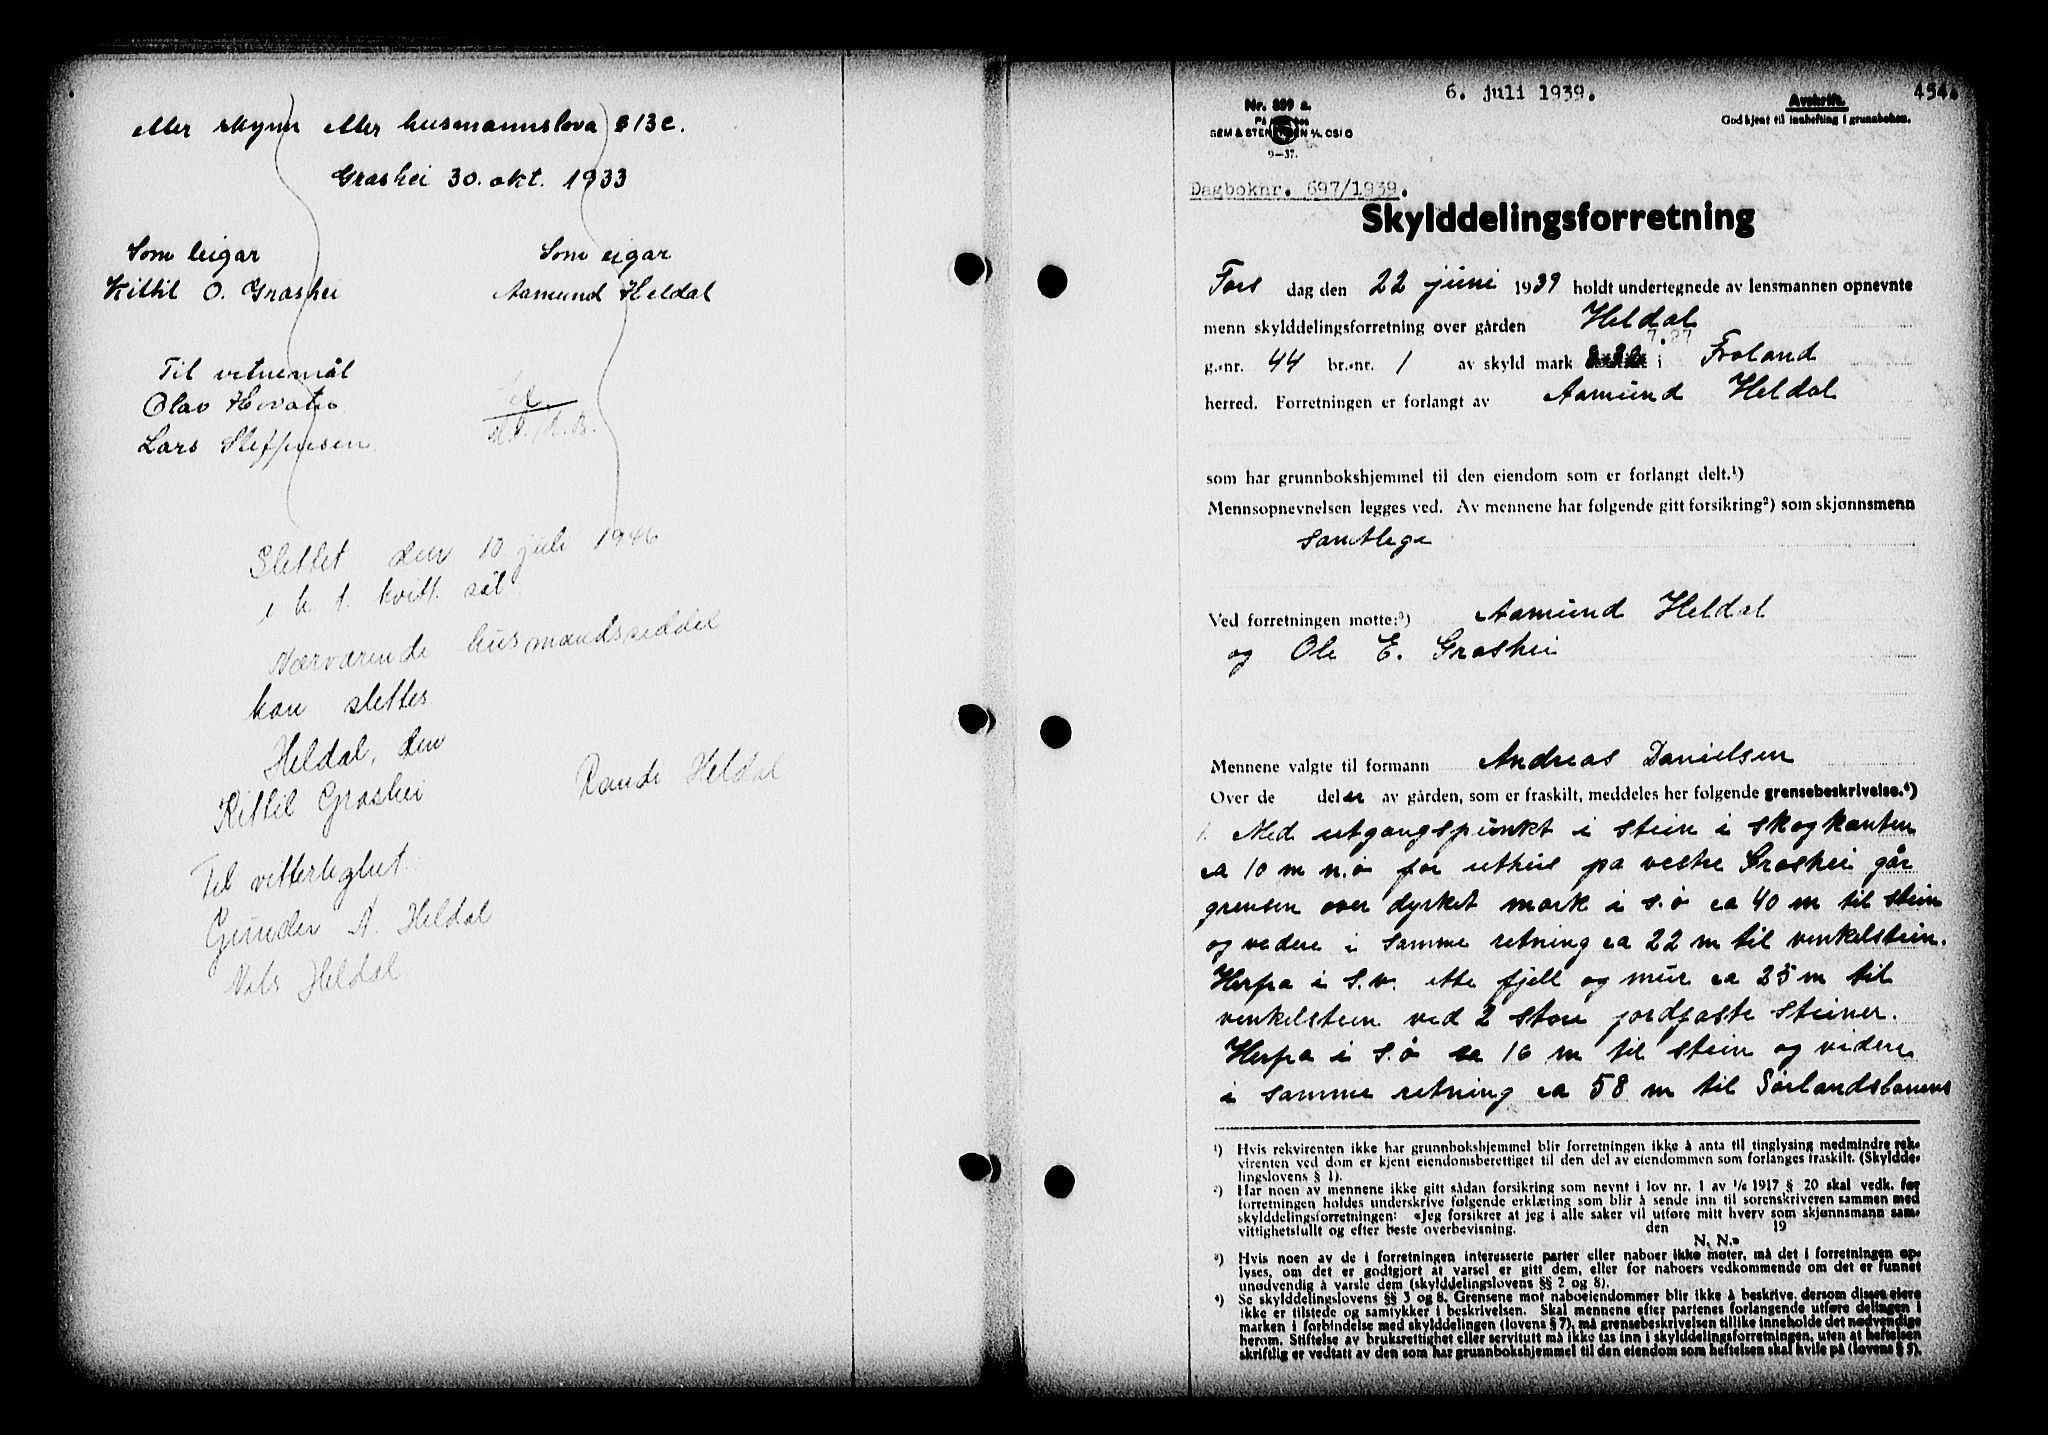 eller skynn etter husmannslova § 13 c.
Groshei 30. okt. 1933
Som leigar
Som eigar
Kittil O. Groshei
Aamund Heldal
Til vitnemål
Olav
Lars Steffensen
Slettet den 10 juli 1946
i h t. kvitt. sål.
Nærværende husmandsseddel
kan slettes
Heldal, den
Kittil Groshei
Randi Heldal
Til vitterlighet.
Gunder A. Heldal
Nils Heldal
6. juli 1939.
Nr. 899 a.
9—37.
Avskrift.
Godkjent til innhefting i grunnboken.
454.
Dagboknr. 697/1939.
Skylddelingsforretning
Tors dag den 22 juni 1939 holdt undertegnede av lensmannen opnevnte
menn skylddelingsforretning over gården Heldal
g.-nr. 44 br.-nr. 1 av skyld mark 7.27 i Froland
herred. Forretningen er forlangt av Aamund Heldal
som har grunnbokshjemmel til den eiendom som er forlangt delt.¹)
Mennsopnevnelsen legges ved. Av mennene har følgende gitt forsikring²) som skjønnsmenn
samtlege
Ved forretningen møtte:³) Aamund Heldal
og Ole E. Groshei
Mennene valgte til formann Andreas Danielsen
Over de deler av gården, som er fraskilt, meddeles her følgende grensebeskrivelse.⁴)
1. Med utgangspunkt i stein i skogkanten
ca 10 m n.ø for uthus på vestre Groshei går
grensen over dyrket mark i s.ø ca 40 m til stein
og videre i samme retning ca 22 m til venkelstein.
Herfra i s.v. ette fjell og mur ca 25 m til
venkelstein ved 2 store jordfaste steiner.
Herfra i s.ø ca 16 m til stein og videre
i samme retning ca 58 m til Sørlandsbanens
¹) Hvis rekvirenten ikke har grunnbokshjemmel blir forretningen ikke å anta til tinglysing medmindre rek-
virenten ved dom er kjent eiendomsberettiget til den del av eiendommen som forlanges fraskilt. (Skyldde-
lingslovens § 1).
²) Har noen av mennene ikke gitt sådan forsikring som nevnt i lov nr. 1 av ¹/₆ 1917 § 20 skal vedk. før
forretningen holdes underskrive følgende erklæring som blir å sende inn til sorenskriveren sammen med
skylddelingsforretningen: «Jeg forsikrer at jeg i alle saker vil utføre mitt hverv som skjønnsmann sam-
vittighetsfullt og efter beste overbevisning. den 19
N. N.»
³) Hvis noen av de i forretningen interesserte parter eller naboer ikke møter, må det i forretningen op-
lyses, om det er godtgjort at varsel er gitt dem, eller for naboers vedkommende om det er funnet
unødvendig å varsle dem (skylddelingslovens §§ 2 og 8).
⁴) Se skylddelingslovens §§ 3 og 8. Grensene mot naboeiendommer blir ikke å beskrive, dersom disses eiere
ikke er tilstede og samtykker i beskrivelsen. Skal mennene efter partenes forlangende utføre delingen i
marken i forbindelse med skylddelingen (lovens § 7), må grensebeskrivelsen tillike inneholde det nødvendige
herom. Stiftelse av bruksrettighet eller servitutt må ikke tas inn i skylddelingsforretningen, uten at heftelsen
skriftlig er vedtatt av den som har grunnbokshjemmel til den eiendom som heftelsen skal hvile på (lovens § 5).